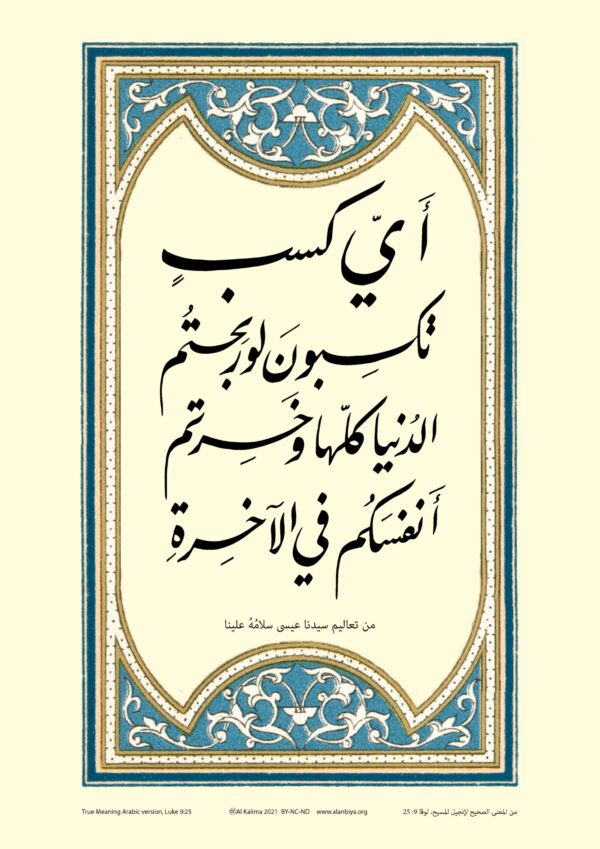 أَيّ كسبٍ
تكسِبونَ لو ربحتُم
الدُنيا كلّها وَخَسِرتم
أَنفسَكُم في الآخِرةِ
من تعاليم سيدنا عيسى سلامُهُ علينا
True Meaning Arabic version, Luke 9:25 @Al Kalima 2021 BY-NC-ND www.alanbiya.org من المعنى الصحيح لإنجيل المسيح، لوقا 9: 25